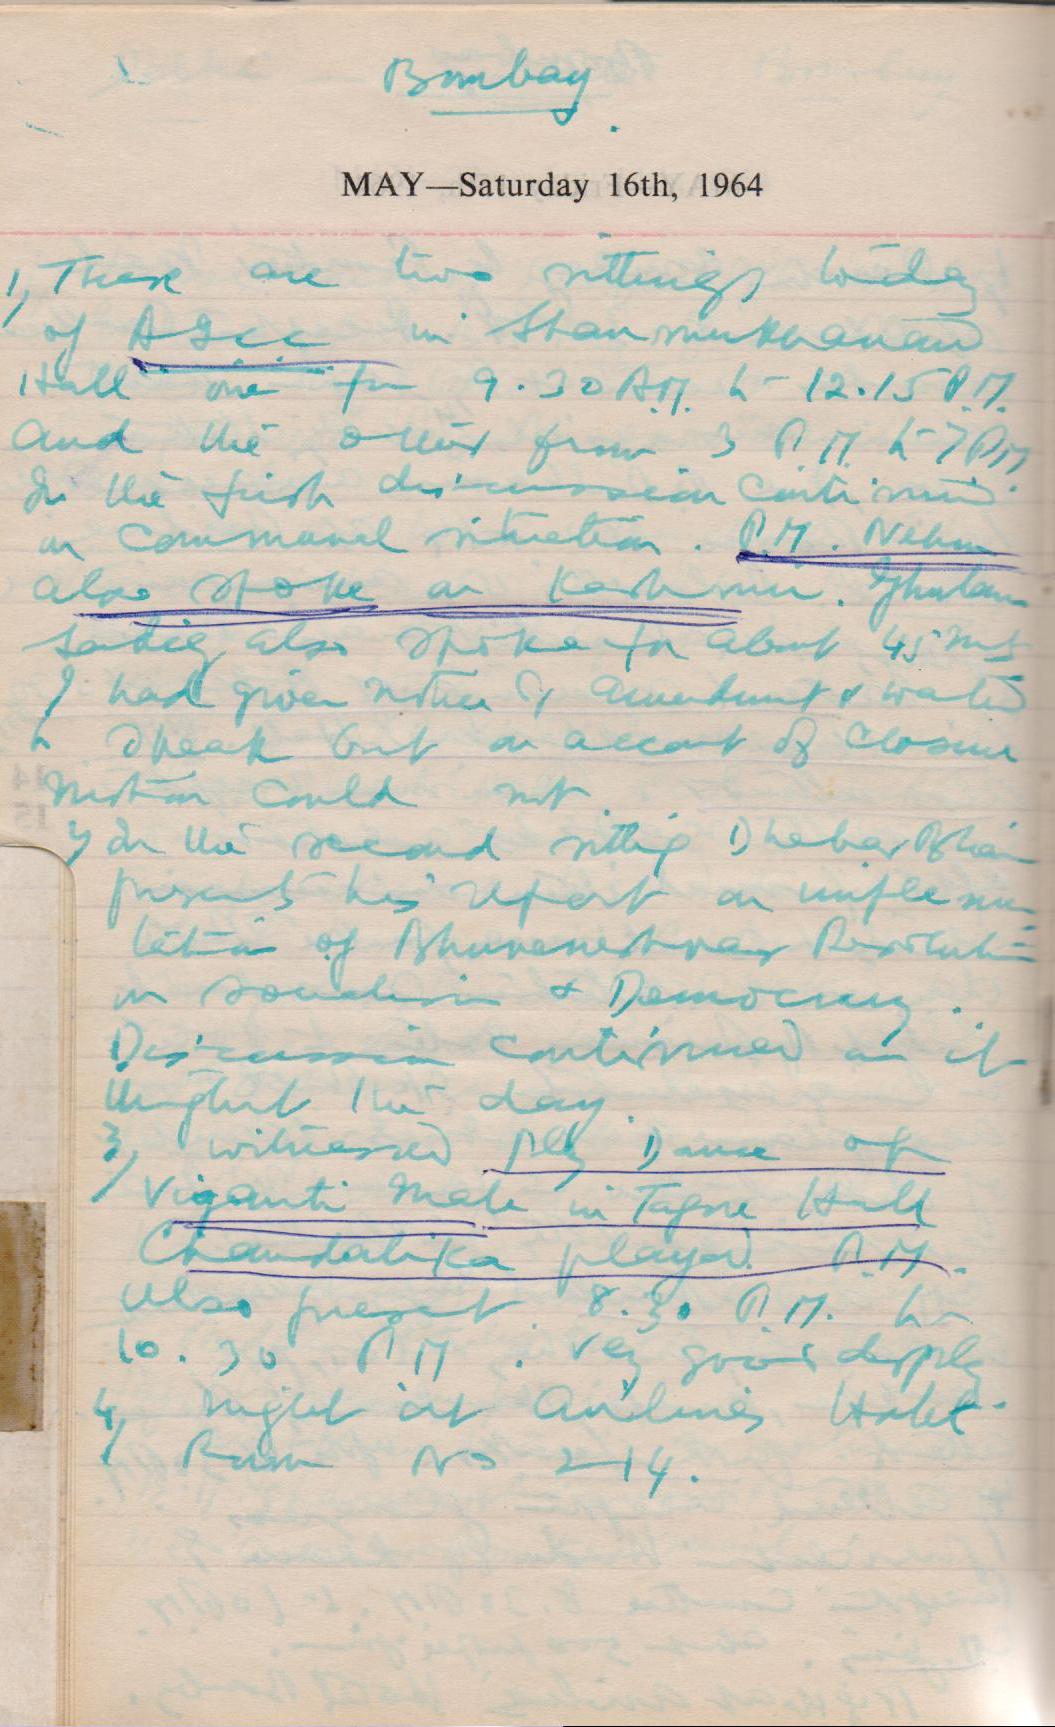 Bombay
MAY—Saturday 16th, 1964
1, There are two sittings today
of AICC in Shanmukhanand
Hall one fr 9.30 A.M. to 12.15 P.M.
and the other from 3 P.M. to 7 P.M
In the first discussion continued
on communal situation. P.M. Nehru
also spoke on Kashmir. Ghulam
Sadiq also spoke for about 45 mts
I had given notice of amendment & wanted
to speak but on account of closure
motion could not.
2, In the second sitting Dhebar Bhai
presents his report on implemen
tation of Bhuvneshwar Resolution
on socialism & Democracy.
Discussion continued on it
throughout the day.
3, witnessed Dance of
Vijyanti Mala in Tagore Hall
Chandalika played. P.M.
also present. 8.30 P.M. to
10.30 P.M. Very good display
4, Night at Airlines Hotel
Room No 214.